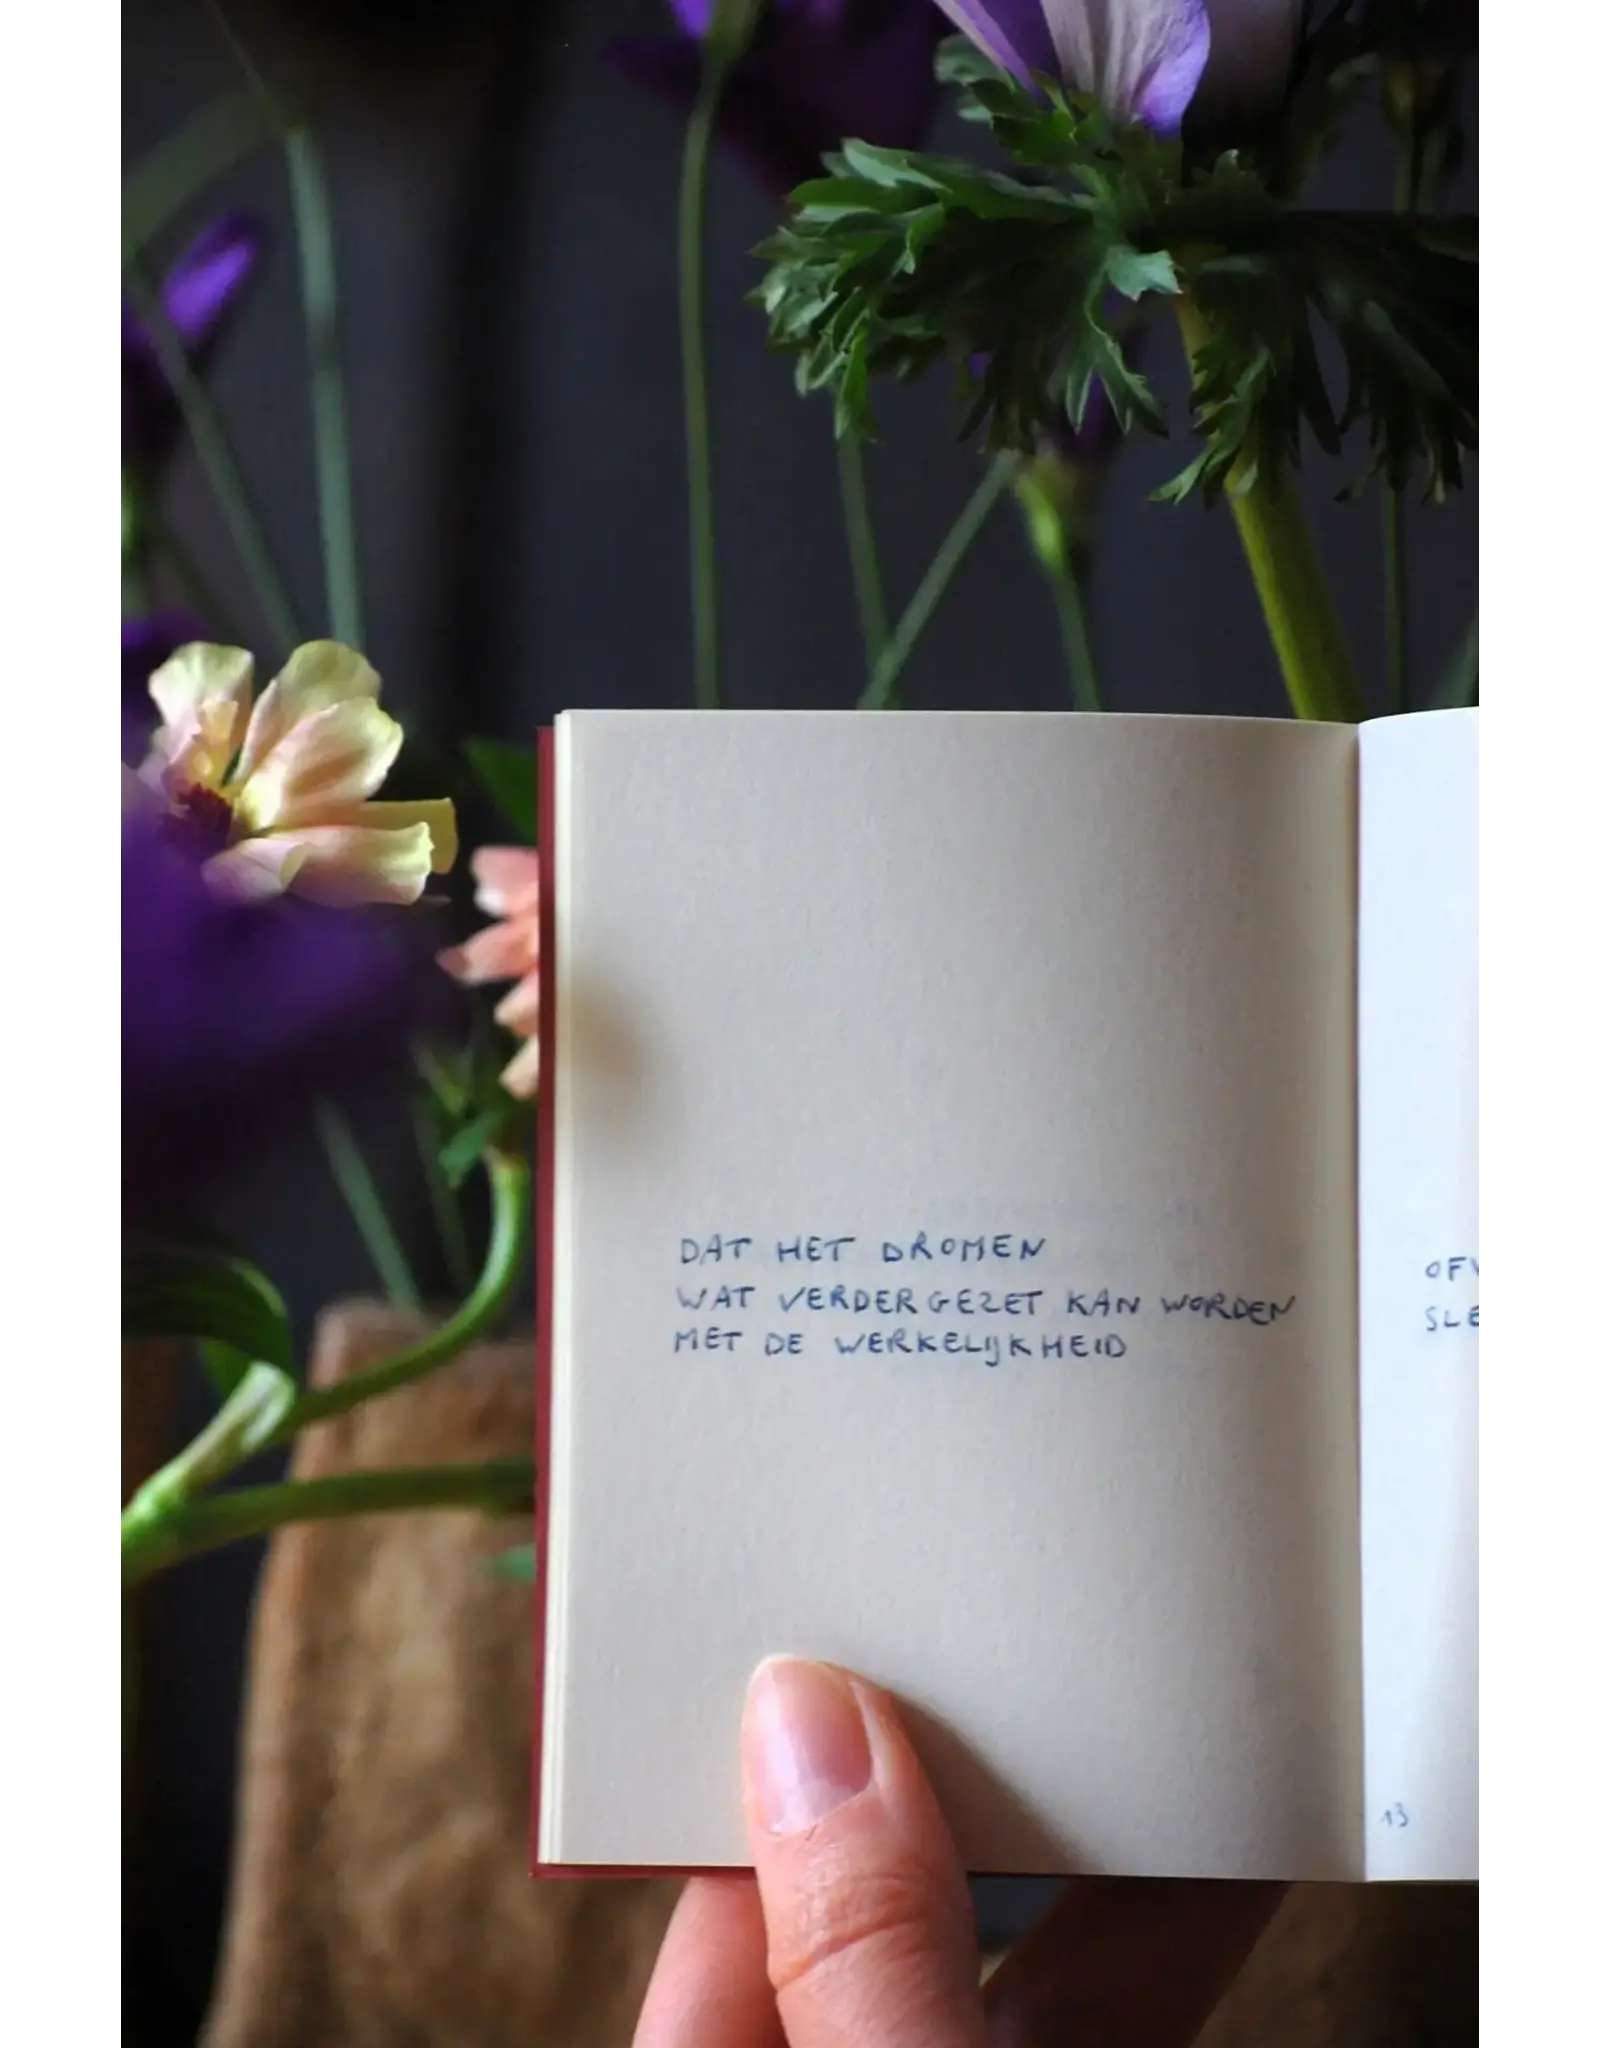 DAT HET DROMEN
WAT VERDER GEZET KAN WORDEN
MET DE WERKELIJKHEID
13